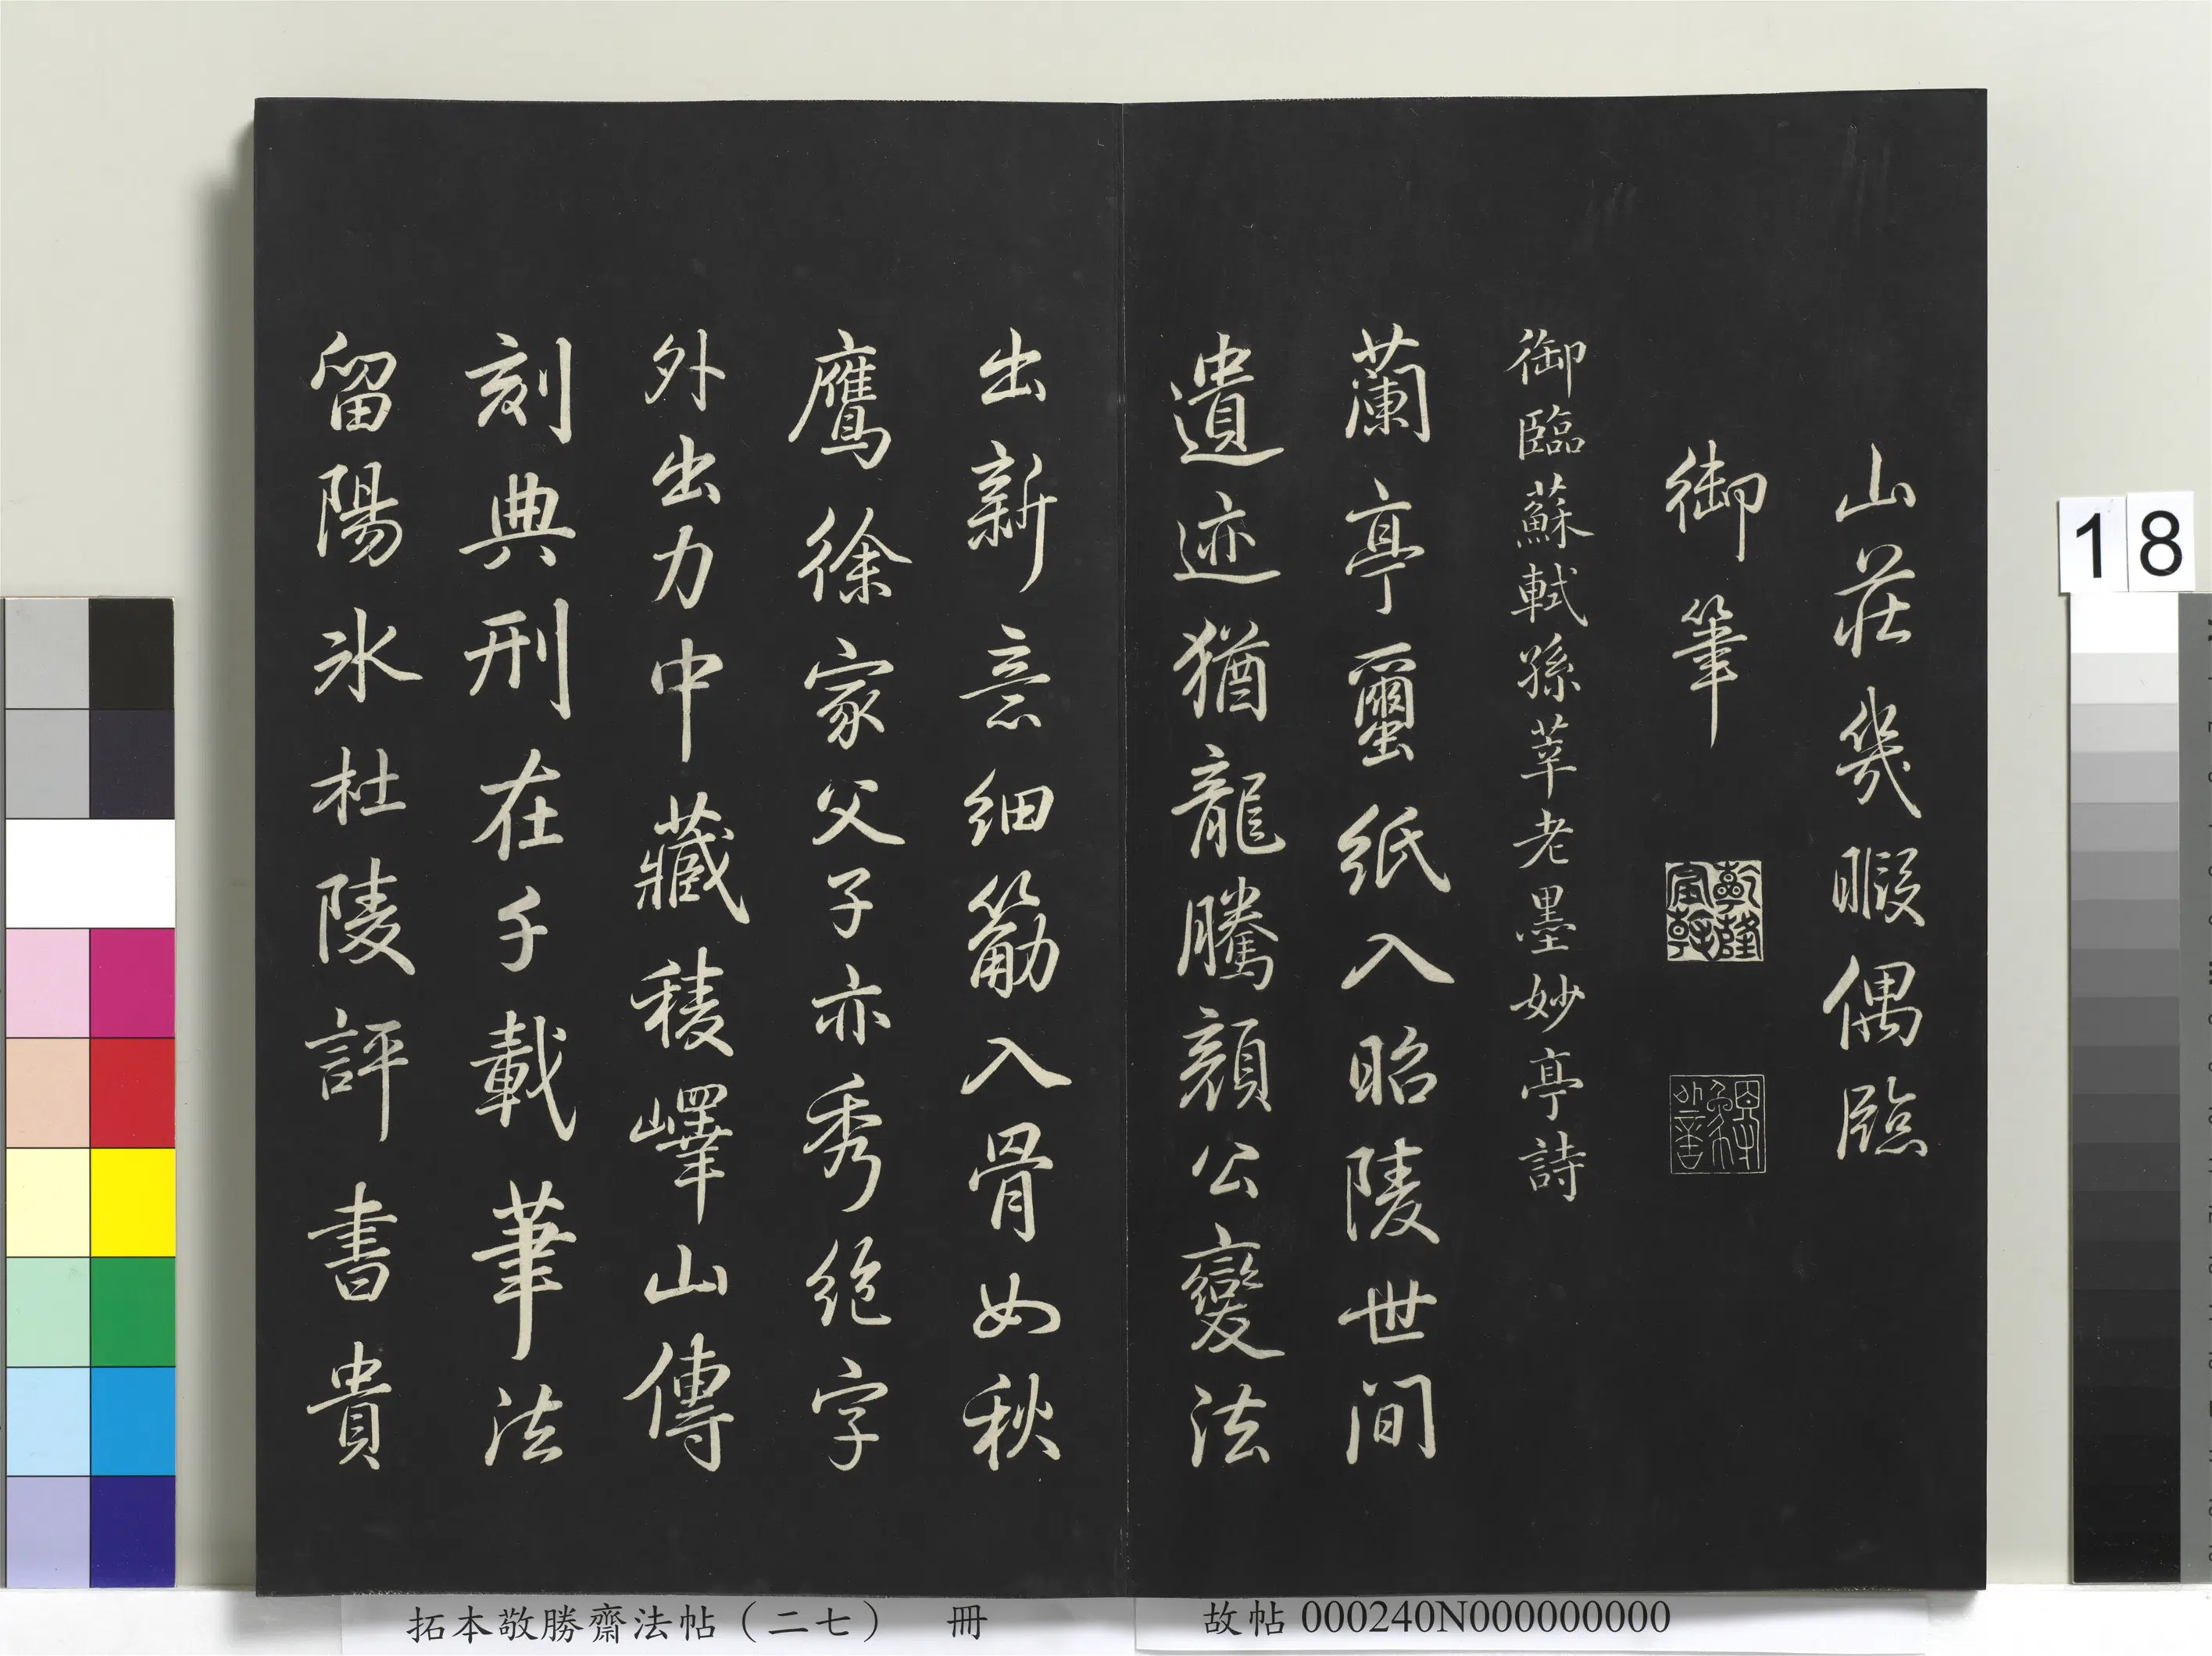 山莊幾暇偶臨
御筆
乾隆宸翰
御臨蘇軾孫莘老墨妙亭詩
蘭亭蠒紙入昭陵世間
遺迹猶龍騰顏公變法
出新意細筋入骨如秋
鷹徐家父子亦秀絕字
外出力中藏稜嶧山傳
刻典刑在千載筆法
留陽冰杜陵評書貴
18
拓本敬勝齋法帖（二七） 冊
故帖 000240N000000000